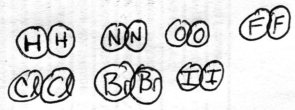 H H N N O O F F
Cl Cl Br Br I I